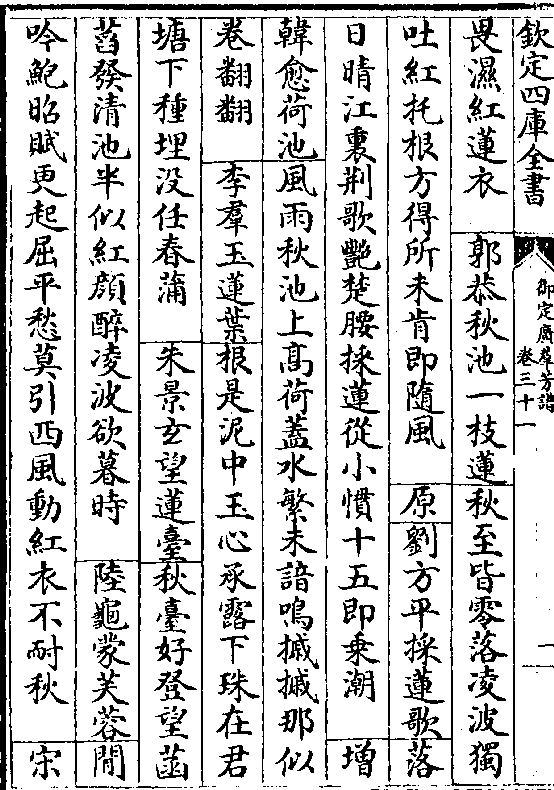 欽定四庫全書
御定廣羣芳譜
卷三十一
一
畏濕紅蓮衣 郭恭秋池一枝蓮秋至皆零落凌波獨
吐紅托根方得所未肯即隨風 原劉方平採蓮歌落
日晴江裏荆歌艷楚腰採蓮從小慣十五即乗潮 增
韓愈荷池風雨秋池上髙荷蓋水繁未諳鳴摵摵那似
卷翻翻 李羣玉蓮葉根是泥中玉心承露下珠在君
塘下種埋没任春蒲 朱景玄望蓮臺秋臺好登望菡
萏發清池半似紅顔醉凌波欲暮時 陸龜蒙芙蓉閒
吟鮑昭賦更起屈平愁莫引西風動紅衣不耐秋 宋